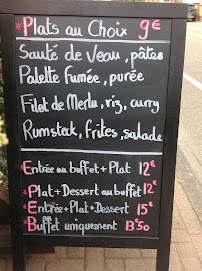 *Plats au Choix 9€
Sauté de Veau, pâtes
Palette Fumée, purée
Filet de Merlu, riz, curry
Rumsteck, frites, salade
*Entrée au buffet + Plat 12€
*Plat + Dessert au buffet 12€
*Entrée + Plat + Dessert 15€
*Buffet uniquement 13'50